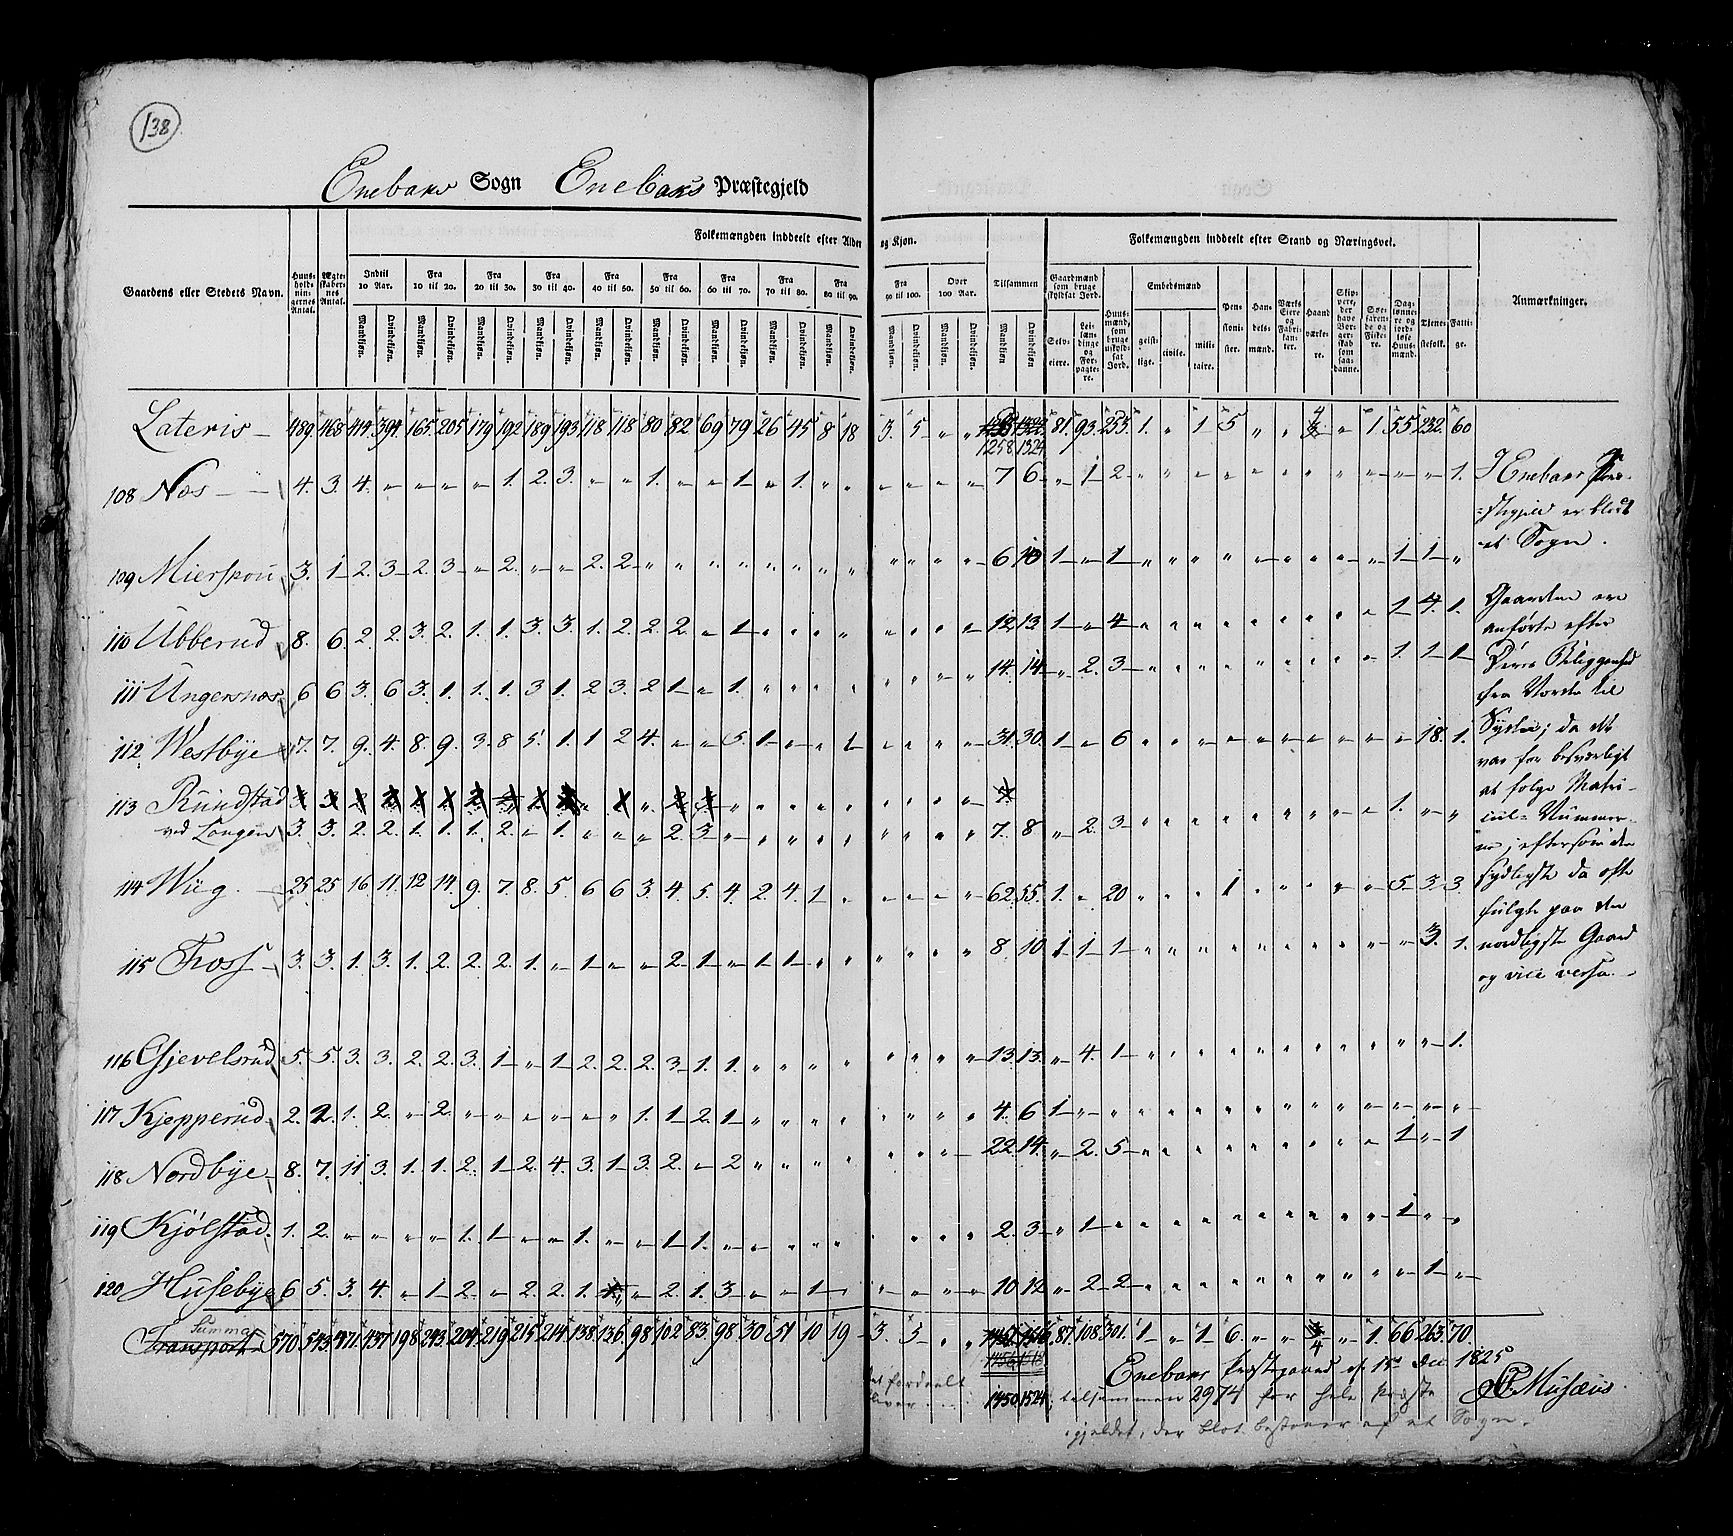 138
Enebaks Sogn Enebaks Præstegjeld
Folkemængden inddeelt efter Alder og Kjøn.
Folkemængden inddeelt efter Stand og Næringsvei.
Gaardens eller Stedets Navn.
Huus-holdnin-gernes Antal.
Ægte-skaber-nes Antal.
Indtil 10 Aar.
Fra 10 til 20.
Fra 20 til 30.
Fra 30 til 40.
Fra 40 til 50.
Fra 50 til 60.
Fra 60 til 70.
Fra 70 til 80.
Fra 80 til 90.
Fra 90 til 100.
Over 100 Aar.
Tilsammen
Gaardmænd som bruge skyldsat Jord.
Huus-mænd, som bruge uskyld-sat Jord.
Embedsmænd
Pen-sioni-ster.
Han-dels-mænd.
Værks Eiere og Fabri-kan-ter.
Haand værke-re.
Skip-pere, der have Bor-gerskab som saa-danne.
Søe-farende og Fiske-re.
Dag-lønne-re og jord-løse Huus-mænd.
Tjene-stefolk.
Fatti-ge.
Anmærkninger.
Mandkjøn. Qvindekjøn.
Selv-eiere.
Lei-lændinge og For-pagte-re.
geist-lige.
civile.
mili-taire.
Lateris 489 468 414 394 165 205 179 192 189 193 118 118 80 82 69 79 26 45 8 18 3. 5 „ „ 81. 93. 253. 1. „ 1 5 „ „ 4 „ 1. 55 232. 60
1258 1324
108 Næs 4. 3. 4. „ „ „ „ 1. 2. 3. „ „ 1. „ „ 1. „ 1. „ „ „ „ „ „ 7 6 „ 1 2 „ „ „ „ „ „ „ „ „ „ „ 1.
109 Mierskou 3. 1 2. 3 2. 3 „ 2. „ „ 2. 2 „ „ „ „ „ „ „ „ „ „ „ „ 6 10 1 „ 1 „ „ „ „ „ „ „ „ „ 1 1 „
110 Ubberud 8. 6. 2. 2. 3. 2. 1. 1. 3. 3. 1. 2. 2. 2. „ 1. „ „ „ „ „ „ „ „ 12. 13. 1 „ 4 „ „ „ „ „ „ „ „ „ 1 4. 1.
111 Ungersnæs 6 6 3. 6 3. 1. 1. 1. 3 1. 2 3. 2 1 „ 1. „ „ „ „ „ „ „ „ 14. 14. „ 2. 3 „ „ „ „ „ „ „ „ „ 1. 1 1
112 Westbÿe 17. 7. 9. 4. 8. 9. 3. 8 5. 1. 1 2 4. „ „ 5. 1. „ „ 1 „ „ „ „ 31. 30. 1 „ 6 „ „ „ „ „ „ „ „ „ „ 18. 1.
113 Rundstad
ved Langen 3. 3. 2. 2. 1. 1. 1. 2. „ 1. „ „ „ 2. 3 „ „ „ „ „ „ „ „ „ 7. 8 „ 2. 3 „ „ „ „ „ „ „ „ „ 1. „ „
114 Wiig 25. 25 16 11. 12 14. 9. 7. 8. 5. 6 6 3. 4. 5. 4. 2. 4. 1 „ „ „ „ „ 62. 55. 1. „ 20 „ „ „ 1. „ „ „ „ „ 5. 3. 3.
115 Foss 3. 3. 1. 3. 1. 2. 2. 2. 1. „ 1 „ „ 2. 1 „ 1 1. „ „ „ „ „ „ 8. 10 1 1 1 „ „ „ „ „ „ „ „ „ „ 3. 1.
116 Gjevelsrud 5. 5. 3. 3. 2. 2. 3. 1 „ 1 2. 2. 2. 3 1. 1. „ „ „ „ „ „ „ „ 13. 13. „ 4. 1 „ „ „ „ „ „ „ „ „ „ „ 1.
117 Kjepperud 2. 2. 1. 2. „ 2. „ „ „ „ „ „ 1. 1. 2. 1 „ „ „ „ „ „ „ „ 4. 6 1 „ „ „ „ „ „ „ „ „ „ „ „ „ „
118 Nordbÿe 8. 7. 11 3. 1. 1. 2. 1 2. 4. 3. 1 3. 2. „ 2 „ „ „ „ „ „ „ „ 22. 14. „ 2. 5 „ „ „ „ „ „ „ „ „ 1 „ 1
119 Kjølstad 1. 2. „ „ „ „ 1. 1 „ „ 1. „ „ 1 1. „ „ „ „ „ „ „ „ „ 2. 3 „ 1 „ „ „ „ „ „ „ „ „ „ 1 „ „
120 Husebÿe 6 5. 3. 4. „ 1 2. „ 2. 2. 1. „ „ 2. 1. 3 „ „ 1 „ „ „ „ „ 10 12. „ 2 2 „ „ „ „ „ „ „ „ „ „ 1 „
Summa
Transport 570 543 471 437 198 243 204 219 215 214 138 136 98 102 83 98 30 51 10 19 3. 5 „ „ 87. 108 301. 1 „ 1 6. „ „ 4 „ 1. 66 263 70.
1450 1524, tilsammen 2974 for hele Præste
gjeldet, der blot bestaaer af et Sogn.
et fordeelt
bliver
I Enebaks Præ-
stegjeld er blot
et Sogn.
Gaardene ere
anførte efter
Deres Beliggenhed
fra Norden til
Syden; da det
var for besværligt
at følge Matri-
cul-Nummer-
ne; eftersom den
sydligste da ofte
fulgte paa den
nordligste Gaard
og vice versa.
Enebaks Præstgaard d. 15de Dec 1825
Musæus.